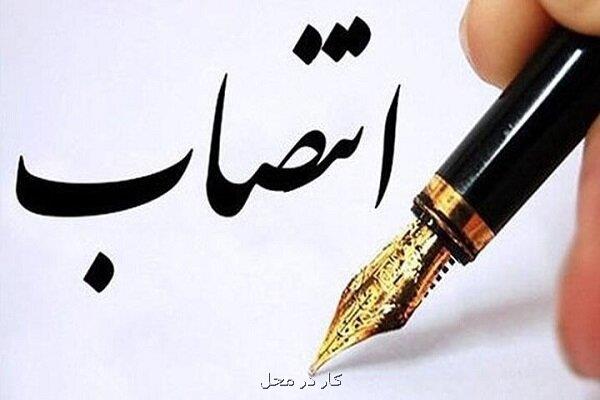 انتصاب
کار در محل